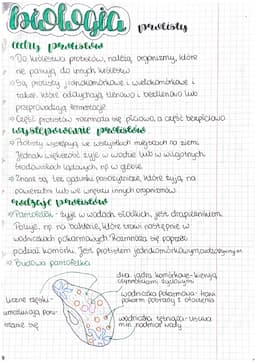 biologia protisty
cechy protistów
Do królestwa protistów, należą organizmy, które
nie pasują do innych królestw
Są protisty jednokomórkowe i wielokomórkowe i
takie które oddychają tlenowo i beztlenowo lub
przeprowadzają fermentację
Część protistów rozmnaża się płciowo, a część bezpłciowo
występowanie protistów
Protisty występują we wszystkich miejscach na ziemi
Jednak większość żyje w wodzie lub w wilgotnych
środowiskach lądowych, np w glebie
Znane są też gatunki pasożytnicze, które żyją na
powierzchni lub we wnętrzu innych organizmów
rodzaje protistów
Pantofelek - żyje w wodach słodkich, jest drapieżnikiem
Poluje, np. na bakterie, które trawi następnie w
wodniczkach pokarmowych. Rozmnaża się poprzez
podział komórki. Jest protistem jednokomórkowym
Budowa pantofelka
dwa jądra komórkowe - kierują
czynnościami życiowymi
wodniczka pokarmowa - trawi
pokarm pobrany z otoczenia
wodniczka tętniąca - usuwa
m.in nadmiar wody
liczne rzęski -
umożliwiają poru-
szanie się